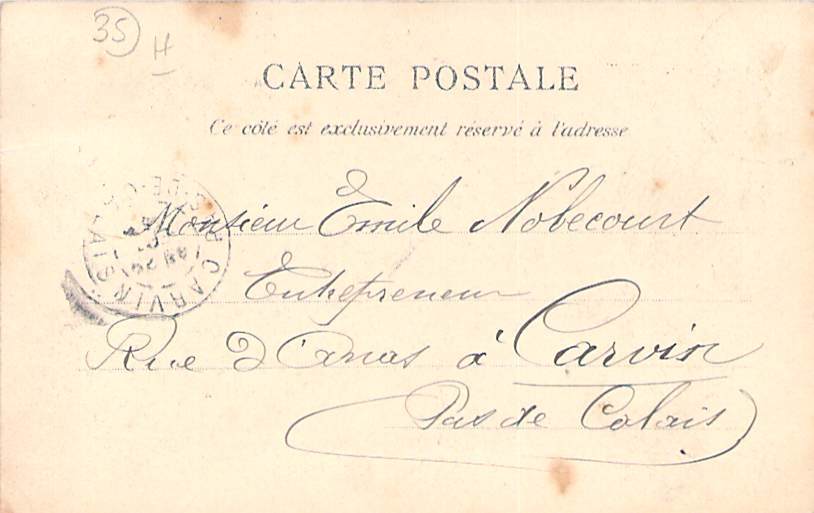 35
H
CARTE POSTALE
Ce côté est exclusivement réservé à l'adresse
Monsieur Emile Nobecourt
Entrepreneur
Rue D'Arras à Carvin
Pas de Calais
CARVIN
PAS-DE-CALAIS